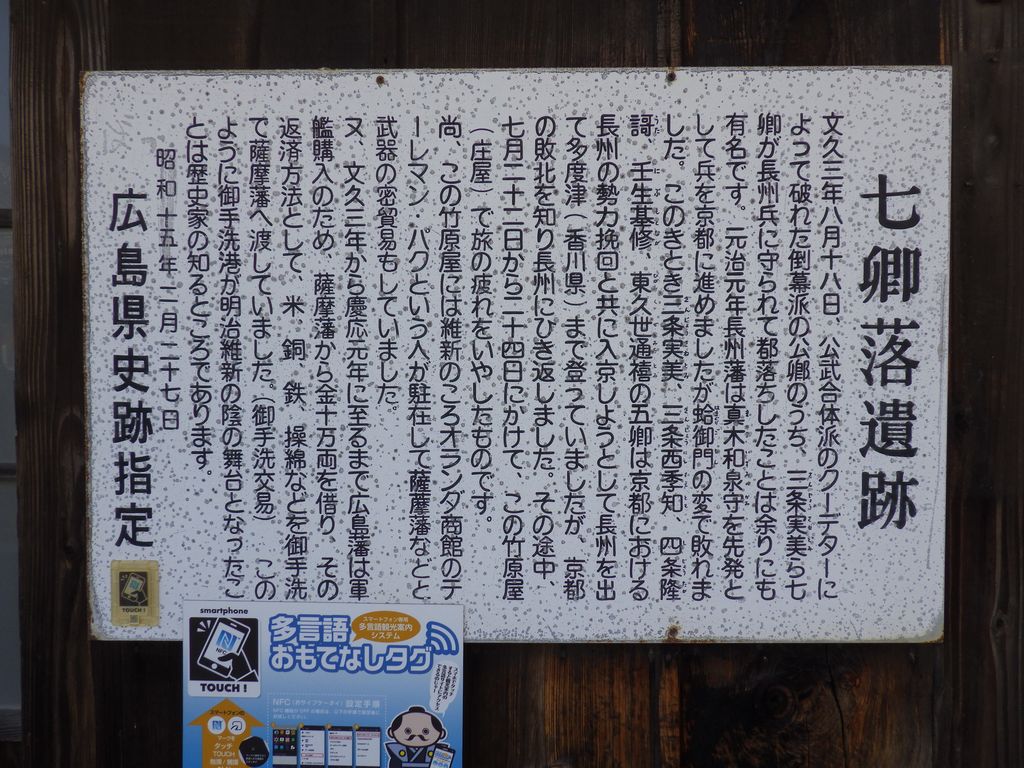 七卿落遺跡
文久三年八月十八日、公武合体派のクーデターに
よって破れた倒幕派の公卿のうち、三条実美ら七
卿が長州兵に守られて都落ちしたことは余りにも
有名です。元治元年長州藩は真木和泉守を先発と
して兵を京都に進めましたが蛤御門の変で敗れま
した。このきとき三条実美、三条西季知、四条隆
謌、壬生基修、東久世通禧の五卿は京都における
長州の勢力挽回と共に入京しようとして長州を出
て多度津(香川県)まで登っていましたが、京都
の敗北を知り長州にひき返しました。その途中
七月二十二日から二十四日にかけて、この竹原屋
(庄屋)で旅の疲れをいやしたものです。
尚、この竹原屋には維新のころオランダ商館のテ
ーレマン・パクという人が駐在して薩摩藩などと
武器の密貿易もしていました。
又、文久三年から慶応元年に至るまで広島藩は軍
艦購入のため、薩摩藩から金十万両を借り、その
返済方法として、米、銅、鉄、操綿などを御手洗
で薩摩藩へ渡していました。(御手洗交易)この
ように御手洗港が明治維新の陰の舞台となったこ
とは歴史家の知るところであります。
昭和十五年二月二十七日
広島県史跡指定
TOUCH!
smartphone
NFC
TOUCH!
多言語
おもてなしタグ
スマートフォン専用
多言語観光案内
システム
NFC(おサイフケータイ)設定手順
スマートフォンの
マークを
タッチ
TOUCH